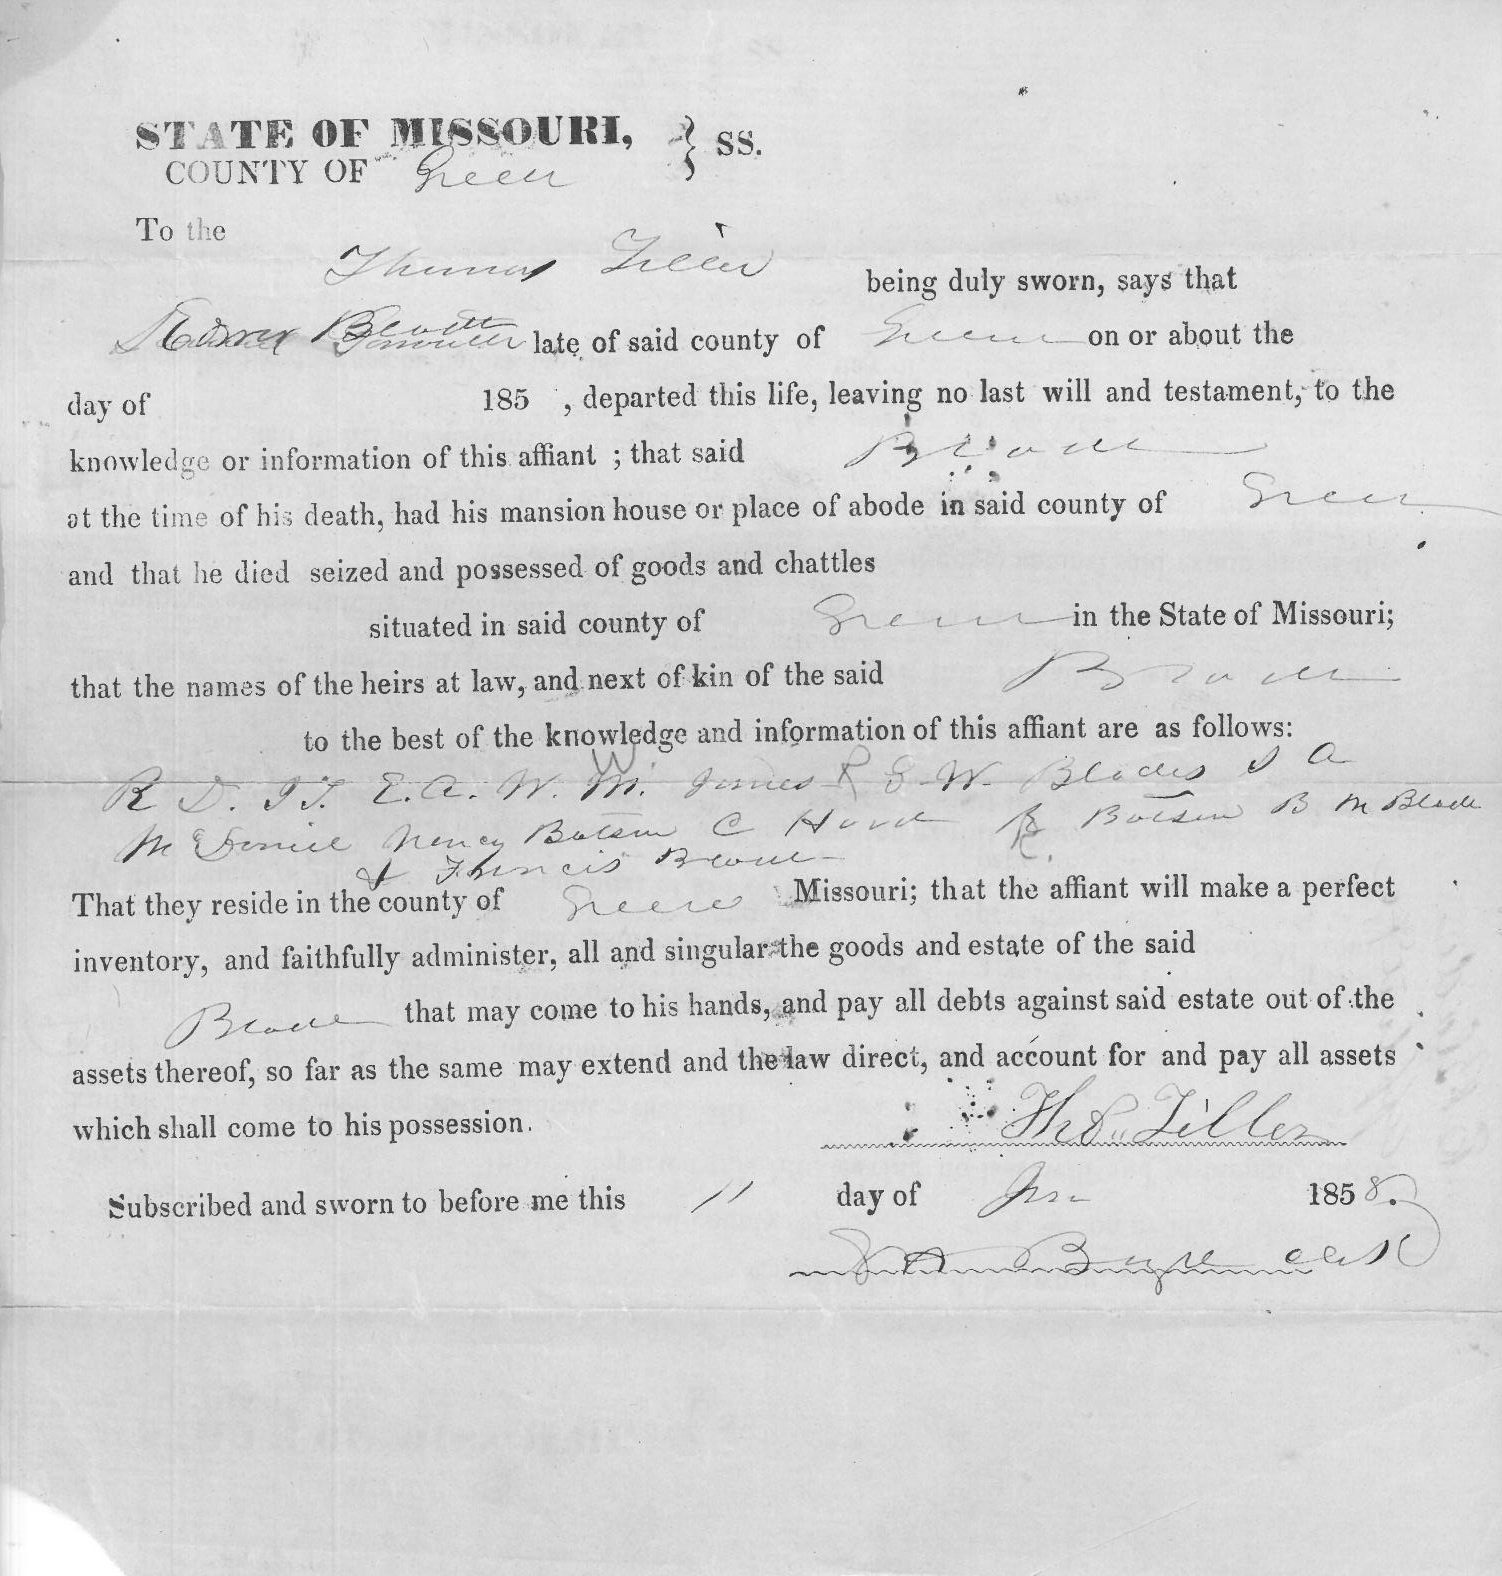 STATE OF MISSOURI, } SS.
COUNTY OF Green
To the
Thomas Tiller being duly sworn, says that
late of said county of Greene on or about the
day of 185 , departed this life, leaving no last will and testament, to the
knowledge or information of this affiant ; that said Blade
at the time of his death, had his mansion house or place of abode in said county of Green
and that he died seized and possessed of goods and chattles
situated in said county of Greene in the State of Missouri;
that the names of the heirs at law, and next of kin of the said Blade
to the best of the knowledge and information of this affiant are as follows:
R D. E. A. W. W. James R G. W. Blades
Nancy Batson C R Batson B M Blade
& Francis Blade
That they reside in the county of Greene Missouri; that the affiant will make a perfect
inventory, and faithfully administer, all and singular the goods and estate of the said
Blade that may come to his hands, and pay all debts against said estate out of the
assets thereof, so far as the same may extend and the law direct, and account for and pay all assets
which shall come to his possession.
Thos. Tiller
Subscribed and sworn to before me this 11 day of 1858.